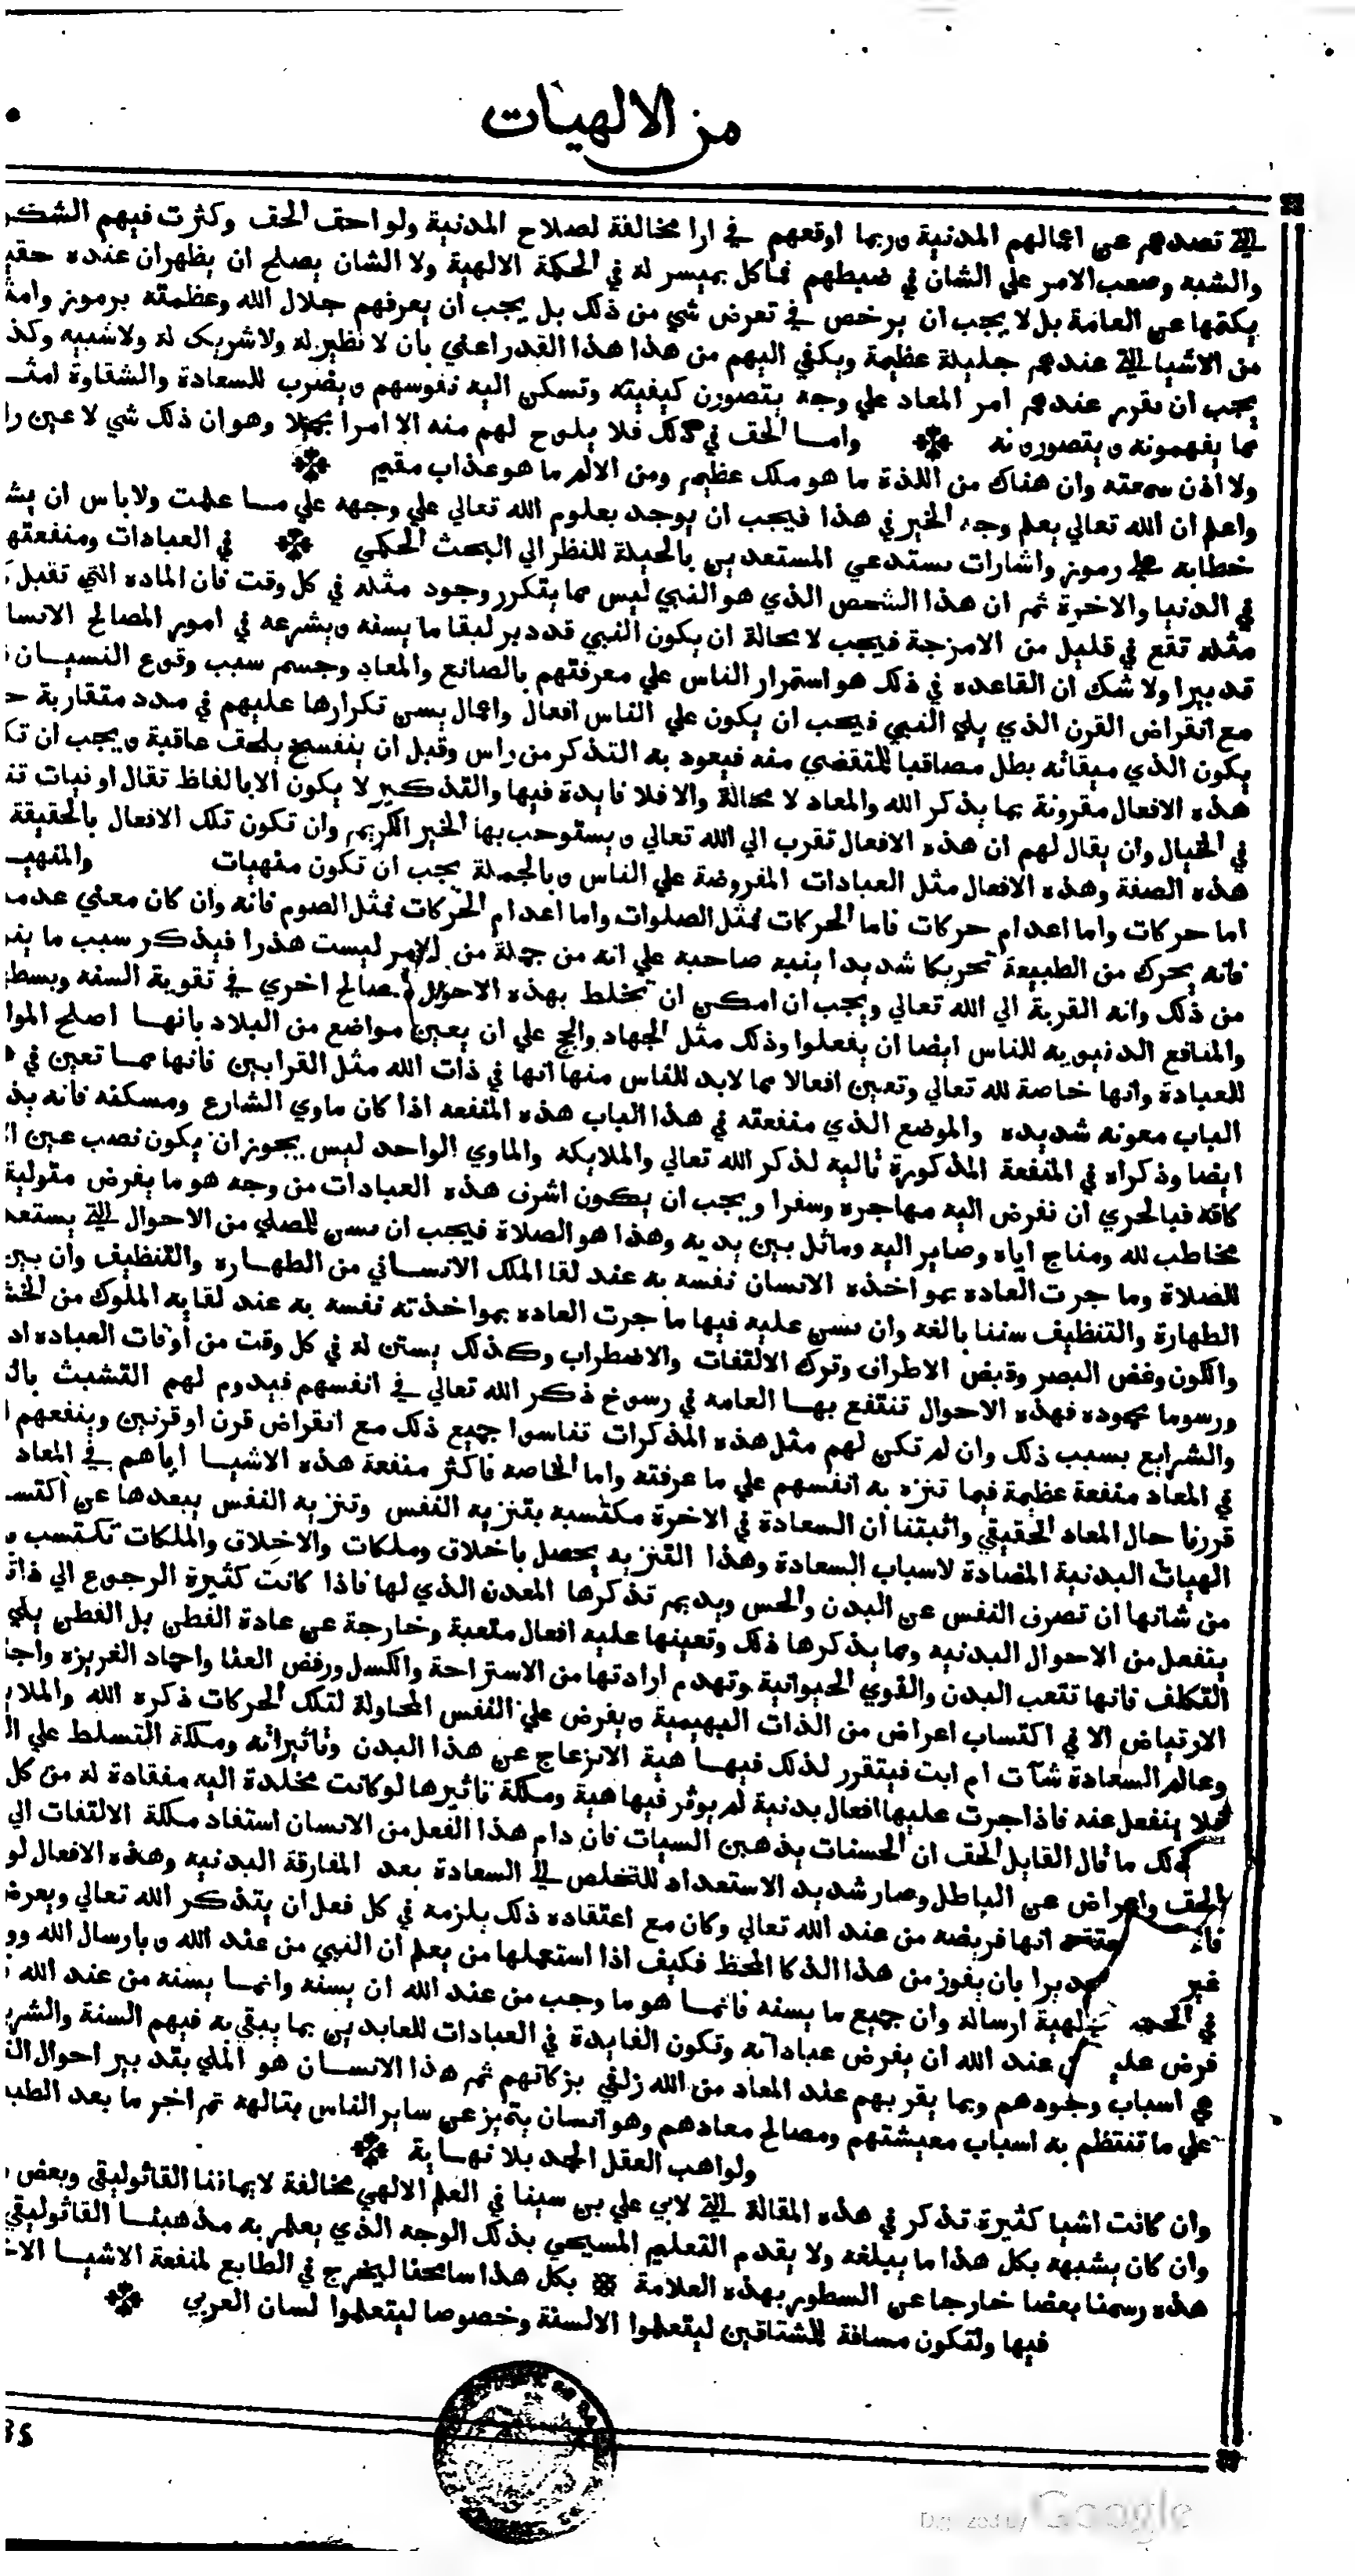 من الالهيات
التي تصدهم عن اعمالهم المدنية وربما اوقعهم في ارا مخالفة لصلاح المدنية ولواحق الحق وكثرت فيهم الشكو
والشبه وصعب الامر علي الشان في ضبطهم فما كل بميسر له في الحكمة الالهية ولا الشان يصلح ان يظهر ان عنده حقي
يكتمها عن العامة بل لا يجب ان يرخص في تعرض شي من ذلك بل يجب ان يعرفهم جلال الله وعظمته برموز وامث
من الاشيا التي عندهم جليلة عظيمة ويكفي اليهم من هذا هذا القدر اعني بان لا نظير له ولا شريك له ولا شبيه وكذ
يجب ان يقرر عندهم امر المعاد علي وجه يتصورن كيفيته وتسكن اليه نفوسهم ويضرب للسعادة والشقاوة امثـ
مما يفهمونه ويتصورونه واما الحق في ذلك فلا يلوح لهم منه الا امرا مجملا وهو ان ذلك شي لا عين را
ولا اذن سمعته وان هناك من اللذة ما هو ملك عظيم ومن الالم ما هو عذاب مقيم
واعلم ان الله تعالي يعلم وجه الخير في هذا فيجب ان يوجد بعلوم الله تعالي علي وجهه علي ما علمت ولا باس ان يش
خطابه علي رموز واشارات يستدعي المستعدين بالحيلة للنظر الي البحث الحكمي في العبادات ومنفعتها
في الدنيا والاخرة ثم ان هذا الشخص الذي هو النبي ليس مما يتكرر وجود مثله في كل وقت فان الماده التي تقبل
مثله تقع في قليل من الامزجة فيجب لا محالة ان يكون النبي قد دبر لبقا ما يسنه ويشرعه في امور المصالح الانسا
تدبيرا ولا شك ان القاعده في ذلك هو استمرار الناس علي معرفتهم بالصانع والمعاد وجسم سبب وقوع النسيان
مع انقراض القرن الذي يلي النبي فيجب ان يكون علي الناس افعال واعمال يسن تكرارها عليهم في مدد متقاربة ح
يكون الذي ميقاته بطل مصاقبا للمتقضي منه فيعود به التذكر من راس وقبل ان ينفسخ يلحق عاقبة ويجب ان تك
هذه الافعال مقرونة بما يذكر الله والمعاد لا محالة والا فلا فايدة فيها والتذكير لا يكون الا بالفاظ تقال او نيات تن
في الخيال وان يقال لهم ان هذه الافعال تقرب الي الله تعالي ويستوجب بها الخير الكريم وان تكون تلك الافعال بالحقيقة
هذه الصفة وهذه الافعال مثل العبادات المفروضة علي الناس وبالجملة يجب ان تكون منبهات والمنبهـ
اما حركات واما اعدام حركات فاما الحركات فمثل الصلوات واما اعدام الحركات فمثل الصوم فانه وان كان معني عدميـ
فانه يحرك من الطبيعة تحريكا شديدا ينبه صاحبه علي انه من جملة من الامر ليست هذرا فيذكر سبب ما ينو
من ذلك وانه القربة الي الله تعالي ويجب ان امكن ان تخلط بهذه الاحوال مصالح اخري في تقوية السنه وبسطه
والمنافع الدنيويه للناس ايضا ان يفعلوا وذلك مثل الجهاد والحج علي ان يعين مواضع من البلاد بانها اصلح الموا
للعبادة وانها خاصة لله تعالي وتعين افعالا مما لابد للناس منها انها في ذات الله مثل القرابين فانها مما تعين في ه
الباب معونه شديده والموضع الذي منفعته في هذا الباب هذه المنفعه اذا كان ماوي الشارع ومسكنه فانه يذ
ايضا وذكراه في المنفعة المذكورة تالية لذكر الله تعالي والملايكه والماوي الواحد ليس يجوز ان يكون نصب عين ا
كافة فبالحري ان تفرض اليه مهاجره وسفرا ويجب ان يكون اشرف هذه العبادات من وجه هو ما يفرض متوليه
مخاطب لله ومناج اياه وصاير اليه وماثل بين يديه وهذا هو الصلاة فيجب ان يسن للمصلي من الاحوال التي يستعد
للصلاة وما جرت العاده بمواخذه الانسان نفسه به عند لقا الملك الانساني من الطهاره والتنظيف وان يبين
الطهارة والتنظيف سننا بالغه وان يسن عليه فيها ما جرت العاده بمواخذته نفسه به عند لقايه الملوك من الخش
والكون وغض البصر وقبض الاطراف وترك الالتفات والاضطراب وكذلك يستن له في كل وقت من اوقات العباده اد
ورسوما محموده فهذه الاحوال تنتفع بها العامه في رسوخ ذكر الله تعالي في انفسهم فيدوم لهم التشبث بالس
والشرايع بسبب ذلك وان لم تكن لهم مثل هذه المذكرات تناسوا جميع ذلك مع انقراض قرن او قرنين وينفعهم ا
في المعاد منفعة عظيمة فيما تنزه به انفسهم علي ما عرفته واما الخاصه فاكثر منفعة هذه الاشيا اياهم في المعاد
قررنا حال المعاد الحقيقي واثبتنا ان السعادة في الاخرة مكتسبه بتنزيه النفس وتنزيه النفس يبعدها عن اكتسـ
الهيات البدنية المضادة لاسباب السعادة وهذا التنزيه يحصل باخلاق وملكات والاخلاق والملكات تكتسب
من شانها ان تصرف النفس عن البدن والحس ويديم تذكرها المعدن الذي لها فاذا كانت كثيرة الرجوع الي ذاتـ
ينفعل من الاحوال البدنيه ومما يذكرها ذلك وتعينها عليه افعال متعبة وخارجة عن عادة الفطن بل الفطن يلي
التكلف فانها تتعب البدن والقوي الحيوانية وتهدم ارادتها من الاستراحة والكسل ورفض العنا واجهاد الغريزه واج
الارتياض الا في اكتساب اعراض من الذات البهيمية ويفرض علي النفس المحاولة لتلك الحركات ذكره الله والملا
وعالم السعادة شات ام ابت فيتقرر لذلك فيها هية الانزعاج عن هذا البدن وتاثيراته ومملكة التسلط علي ال
فلا ينفعل عنه فاذا جرت عليها افعال بدنية لم يوثر فيها هية ومملكة تاثيرها لو كانت مخلدة اليه منقادة له من كل
لذلك ما قال القايل الحق ان الحسنات يذهبن السيات فان دام هذا الفعل من الانسان استفاد مملكة الالتفات الي
الحق واعراض عن الباطل وصار شديد الاستعداد للتخلص الي السعادة بعد المفارقة البدنيه وهذه الافعال لو
انها فريضه من عند الله تعالي وكان مع اعتقاده ذلك يلزمه في كل فعل ان يتذكر الله تعالي ويعرض
غير بان يفوز من هذا الذكا المحظ فكيف اذا استعملها من يعلم ان النبي من عند الله وبارسال الله وو
في ارساله وان جميع ما يسنه فانما هو ما وجب من عند الله ان يسنه وانما يسنه من عند الله
فرض عليه عند الله ان يفرض عباداته وتكون الفايدة في العبادات للعابدين بما يبقي به فيهم السنة والشر
هي اسباب وجودهم وبما يقربهم عند المعاد من الله زلفي بزكاتهم ثم هذا الانسان هو الملي بتدبير احوال الن
علي ما تنتظم به اسباب معيشتهم ومصالح معادهم وهو انسان يتميز عن ساير الناس بتالهه تم اخر ما بعد الطب
ولواهب العقل المجد بلا نهاية
وان كانت اشيا كثيرة تذكر في هذه المقالة التي لابي علي بن سينا في العلم الالهي مخالفة لايماننا القاثوليقي وبعض
وان كان يشبهه بكل هذا ما يبلغه ولا يقدم التعليم المسيحي بذلك الوجه الذي يعلم به مذهبنا القاثوليقي
هذه رسمنا بعضا خارجا عن السطور بهذه العلامة بكل هذا سامحنا ليخرج في الطابع لمنفعة الاشيا الا
فيها ولتكون مسافة للمشتاقين ليتعلموا الالسنة وخصوصا ليتعلموا لسان العربي
Digitized by Google